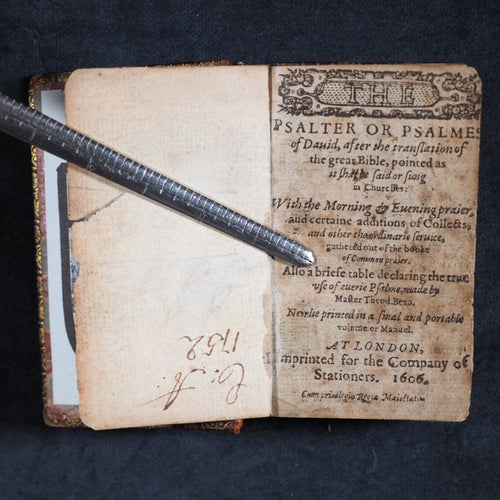 THE
PSALTER OR PSALMES
of Dauid, after the translation of
the great Bible, pointed as
it shalbe said or sung
in Churches:
With the Morning & Euening praier,
and certaine additions of Collects,
and other the ordinarie seruice,
gathered out of the booke
of Common praier.
Also a briefe table declaring the true
use of euerie Psalme, made by
Master Theod. Beza.
Newlie printed in a smal and portable
volume or Manuel.
AT LONDON,
Imprinted for the Company of
Stationers. 1606.
Cum priuilegio Regiæ Maiestatis
C: A: 1752